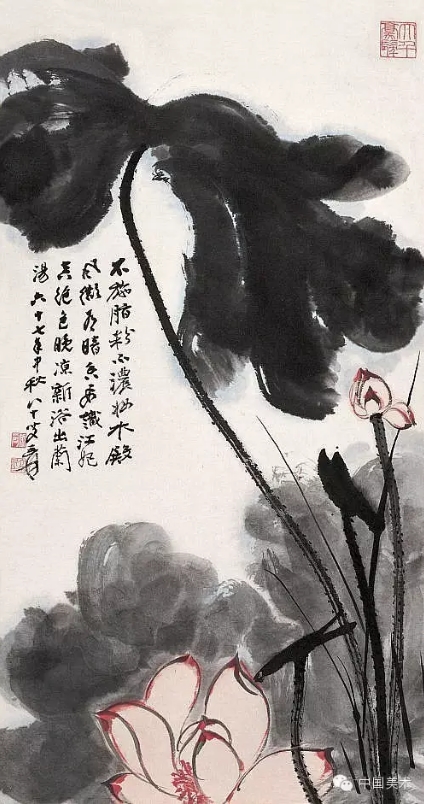 不施脂粉不濃妝水殿
風微有暗香要識江妃
真絕色晚涼新浴出蘭
湯六十七年中秋八十叟爰
中国美术